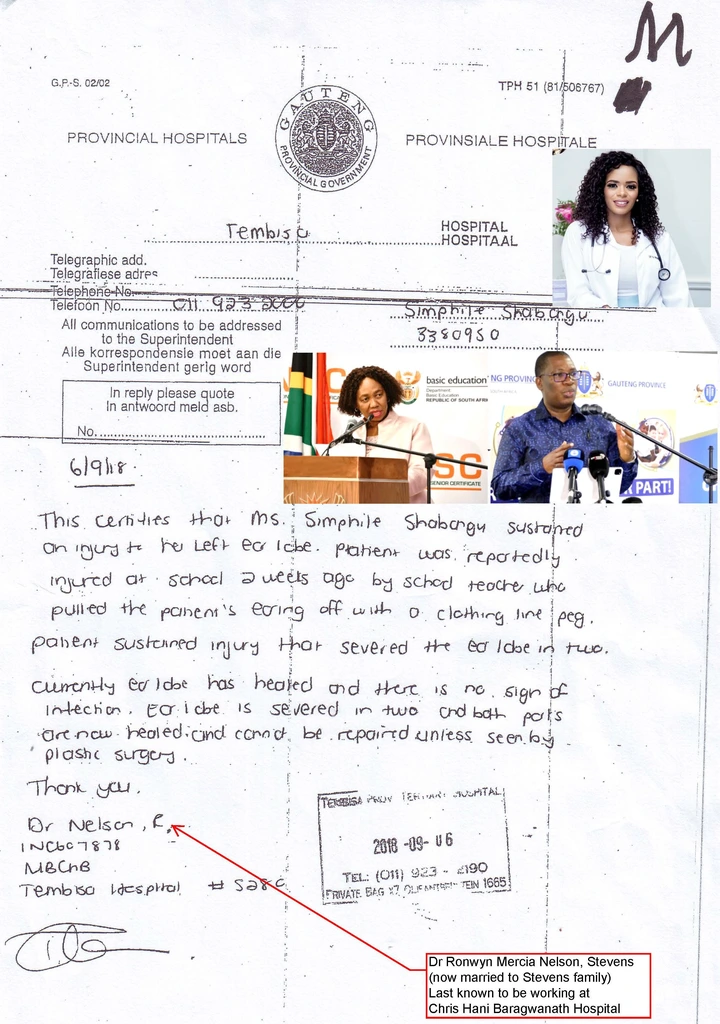 M
G.P.-S. 02/02
TPH 51 (81/506767)
GAUTENG
PROVINCIAL GOVERNMENT
PROVINCIAL HOSPITALS
PROVINSIALE HOSPITALE
Tembisa HOSPITAL
HOSPITAAL
Telegraphic add.
Telegrafiese adres
Telephone No.
Telefoon No. 011 923 2000
Simphile Shabangu
3380950
All communications to be addressed
to the Superintendent
Alle korrespondensie moet aan die
Superintendent gerig word
In reply please quote
In antwoord meld asb.
No.
basic education
Department:
Basic Education
REPUBLIC OF SOUTH AFRI
SC
SENIOR CERTIFICATE
NG PROVINC
GAUTENG PROVINCE
R PART!
6/9/18
This certifies that Ms. Simphile Shabangu sustained
an injury to her left ear lobe. Patient was reportedly
injured at school 2 weeks ago by school teacher who
pulled the patient's earing off with a clothing line peg.
Patient sustained injury that severed the ear lobe in two.
Currently ear lobe has healed and there is no sign of
infection. Ear lobe is severed in two and both parts
are now healed and cannot be repaired unless seen by
plastic surgery.
Thank you.
Dr Nelson, R.
MBChB
Tembisa Hospital
TEMBISA PROV TERTIARY HOSPITAL
2018 -09- 06
TEL: (011) 923 - 2190
PRIVATE BAG X7, OLIFANTSFONTEIN 1665
Dr Ronwyn Mercia Nelson, Stevens
(now married to Stevens family)
Last known to be working at
Chris Hani Baragwanath Hospital